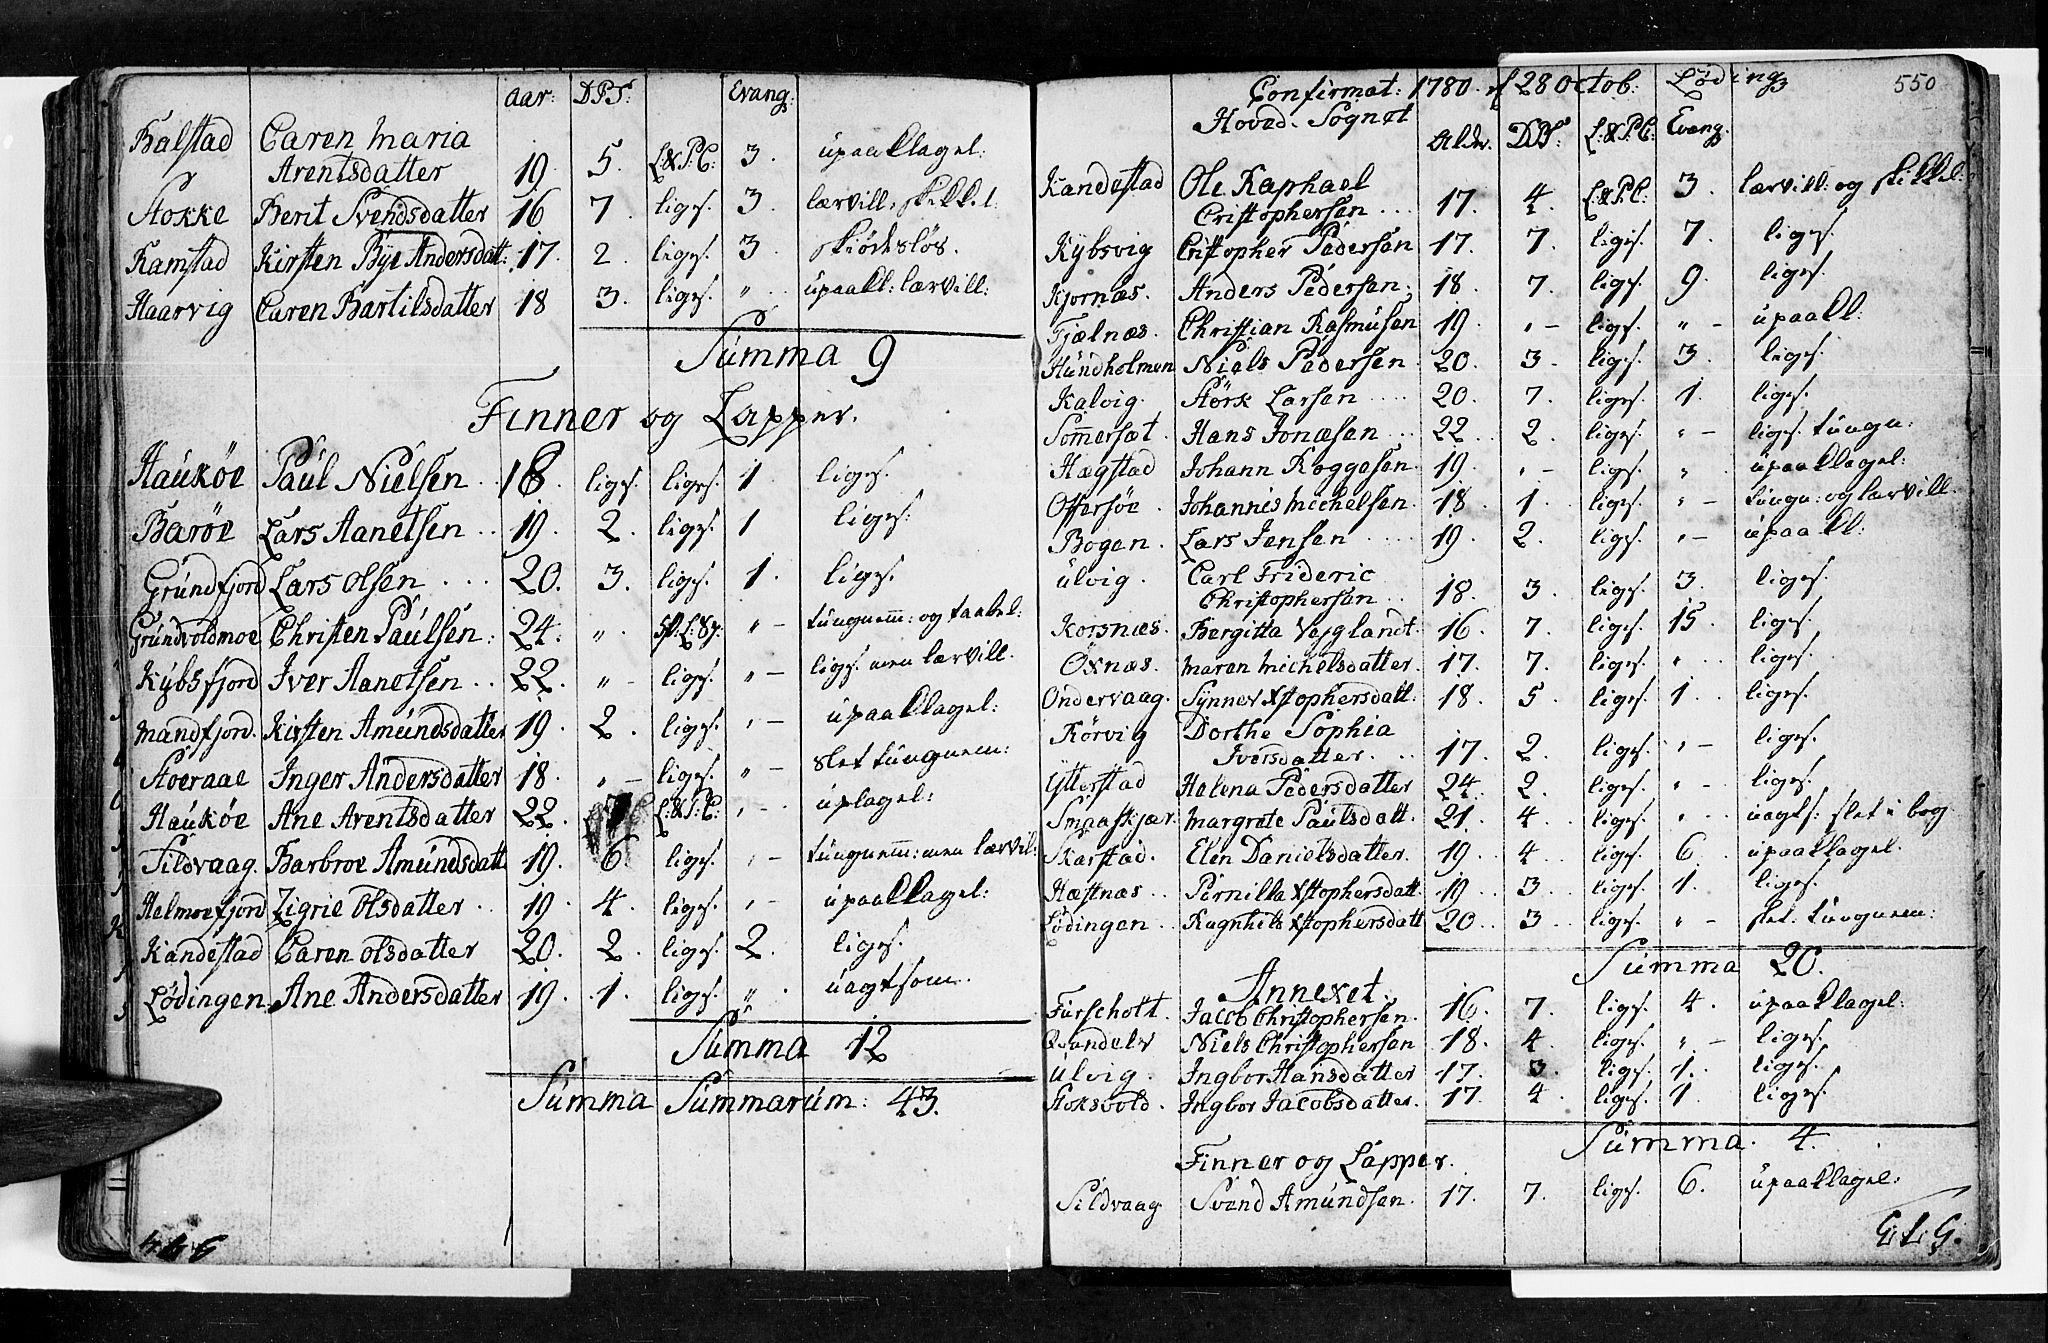 Aar: DPS: Evang:
Balstad Caren Maria
Arentsdatter 19 5. L:&P:C: 3. upaaklagel:
Stokke Berit Svendsdatter 16 7. liges. 3. lærvill: skikkel:
Ramstad Kirsten Bye Andersdatt: 17. 2. liges. 3. skiødesløs.
Haarvig Caren Bartilsdatter 18 3. liges. " upaakl: lærvill:
Summa 9
Finner og Lapper.
Haukøe Paul Nielsen 18. liges. liges. 1 liges.
Barøe Lars Aanetsen 19. 2. liges. 1 liges:
Grundfjord Lars Olsen 20. 3. liges. 1. liges.
Grundvoldmoe Christen Paulsen: 24. " " – tungnem: og taabel:
Kybsfjord Iver Aanetsen 22. " – liges. " – liges. men lærvill.
Mandfjord. Kirsten Amundsdatter 19. 2. liges. " – upaaklagel:
Stoernae Inger Andersdatter 18. " – liges. " – slet tungnem:
Haukøe Ane Arentsdatter 22. L:&P:C: " – uplagel:
Sildvaag. Barbroe Amundsdatt 19. 6. liges. " – tungnem: men lærvil:
Helmoefjord Zigrie Olsdatter 19. 4. liges. " – upaaklagel:
Kandestad Caren Olsdatter 20. 2. liges. 2. liges.
Lødingen Ane Andersdatter 19. 1. liges. " uagtsom.
Summa 12
Summa Summarum: 43.
Confirmat: 1780. d 28 Octob: Løding 550
Hoved-Sognet Alder. DPS: L:&P:C: Evang.
Kandestad Ole Raphael
Cristophersen 17. 4. L:&P:C: 3. lærvill: og skikkel:
Kybsvig Cristopher Pedersen 17. 7. liges. 7. liges.
Kjornæs. Anders Pedersen 18. 7. liges. 9. liges.
Fjælnæs. Christian Rasmusen 19. " – liges. " – upaakl:
Hundholmen Niels Pedersen 20. 3. liges. 3. liges.
Kalvig. Størk Larsen 20. 7. liges. 1. liges.
Som̅ersæt. Hans Jonæsen 22. 2. liges. " – liges. tungn:
Hægstad Johann Roggesen 19. " – liges. " upaaklagel:
Offersøe Johannis Michelsen 18. 1. liges. " – tungn: og lærvill.
Bogen. Lars Jensen 19. 2. liges. " – upaakl:
Ulvig. Carl Frideric
Christophersen 18. 3. liges. 3. liges.
Korsnæs. Bergitta Vejglandt. 16. 7. liges. 15. liges.
Öxnæs. Maren Michelsdatter. 17. 7. liges. " liges.
Ondervaag. Synnev Xstophersdatt: 18. 5. liges. 1. liges.
Rörvig Dorthe Sophia
Iversdatter 17. 2. liges. " – liges.
Ytterstad Helena Pedersdatter 24. 2. liges. " – liges.
Smaaskjær. Margrete Paulsdatt. 21. 4. liges. " uagts: slet i bog
Skarstad. Elen Danielsdatter. 19. 4. liges. 6. upaaklagel.
Hæstnæs Pernilla Xstophersdatt. 19. 3. liges. 1. liges.
Lödingen Ragnhild Xstophersdatt 20. 3. liges. " – slet. tungnem:
Summa 20.
Annexet.
Furscholt. Jacob Christophersen. 16. 7. liges. 4. upaaklagel:
Niels Christophersen 18. 4. liges. " – liges.
Ulvig. Ingbor Hansdatter 17. 3. liges. 1. liges.
Stoksvold. Ingbor Jacobsdatter. 17. 4. liges. 1. liges.
Summa. 4.
Finner og Lapper.
Sildvaag Svend Amundsen. 17. 7. liges. 6. upaaklagel: